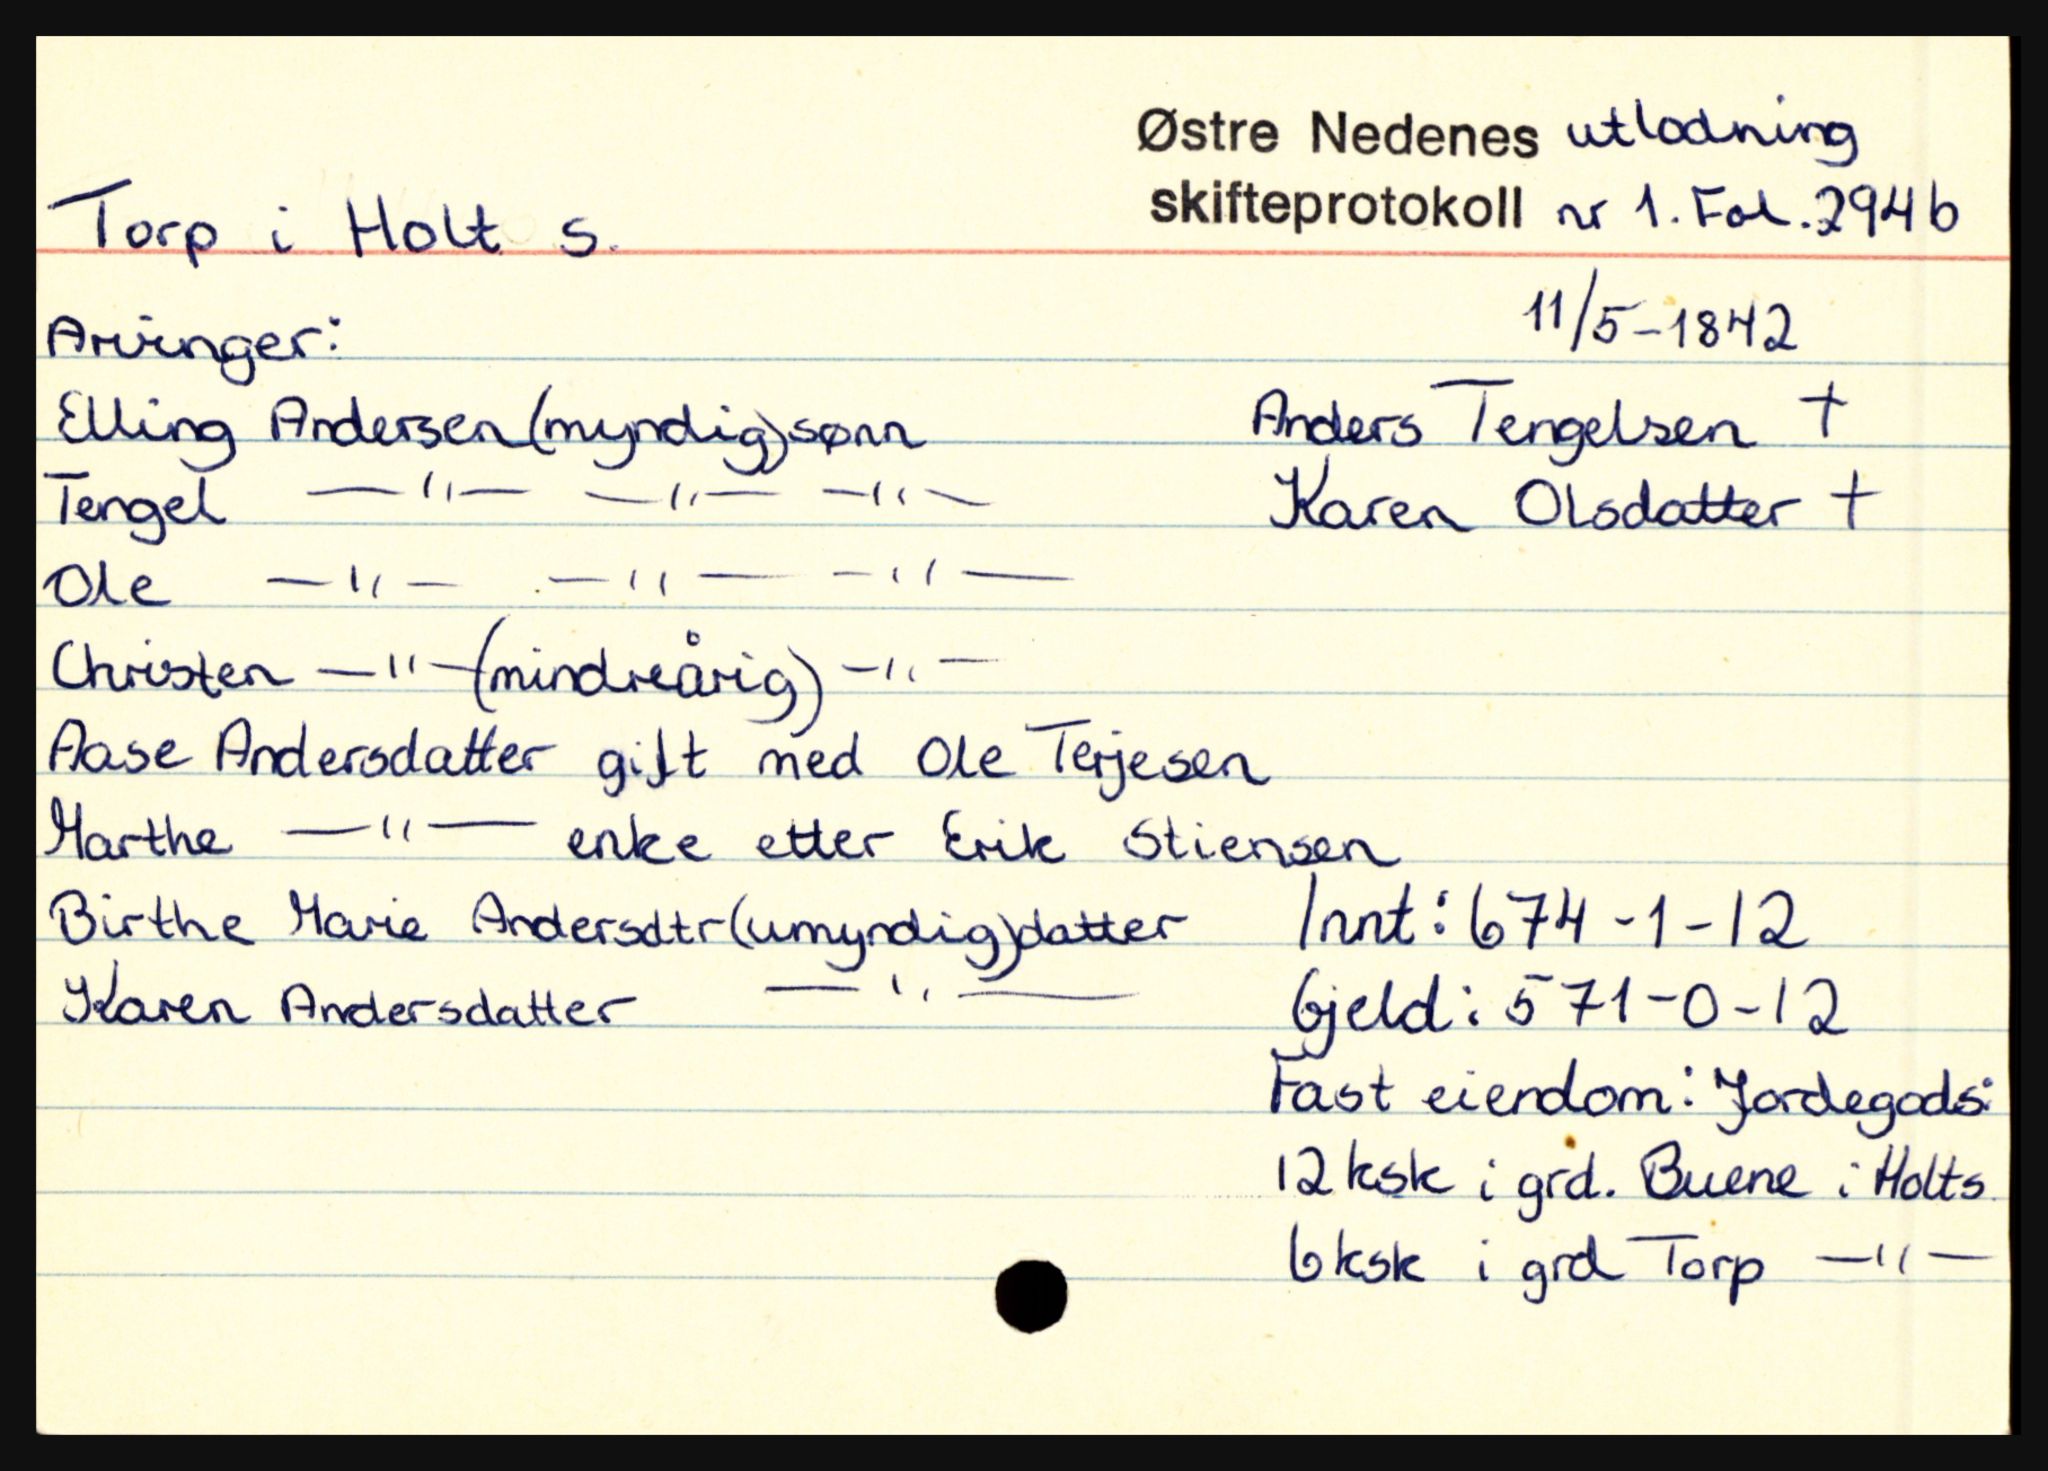 Østre Nedenes utlodning
skifteprotokoll nr 1. Fol. 294b
Torp i Holt s.
11/5-1842
Arvinger:
Elling Andersen (myndig) sønn
Tengel —"— —"— —"—
Ole —"— —"— —"—
Christen —"— (mindreårig) —"—
Aase Andersdatter gift med Ole Terjesen
Marthe —"— enke etter Erik Stiensen
Birthe Marie Andersdtr (umyndig) datter
Karen Andersdatter —"—
Anders Tengelsen †
Karen Olsdatter †
Innt: 674-1-12
Gjeld: 571-0-12
Fast eiendom: Jordegods:
12 ksk i grd. Buene i Holt s.
6 ksk i grd Torp —"—